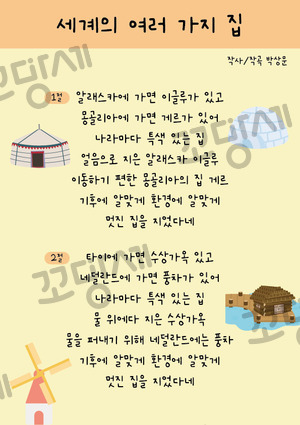 세계의 여러 가지 집
작사/작곡 박상문
1절
알래스카에 가면 이글루가 있고
몽골리아에 가면 게르가 있어
나라마다 특색 있는 집
얼음으로 지은 알래스카 이글루
이동하기 편한 몽골리아의 집 게르
기후에 알맞게 환경에 알맞게
멋진 집을 지었다네
2절
타이에 가면 수상가옥 있고
네덜란드에 가면 풍차가 있어
나라마다 특색 있는 집
물 위에다 지은 수상가옥
물을 퍼내기 위해 네덜란드에는 풍차
기후에 알맞게 환경에 알맞게
멋진 집을 지었다네
꼬당세
꼬당세
꼬당세
꼬당세